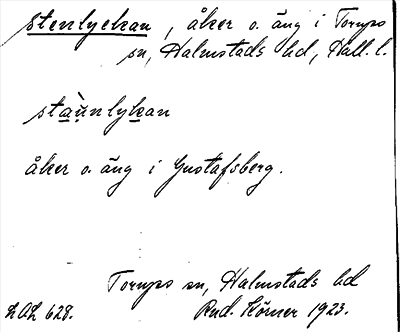 stenlyckan, åker o. äng i Torups
sn, Halmstads hd, Hall. l.
stàu̇nlykan
åker o. äng i Gustafsberg.
Torups sn, Halmstads hd
LAL 628. Rud. Körner 1923.